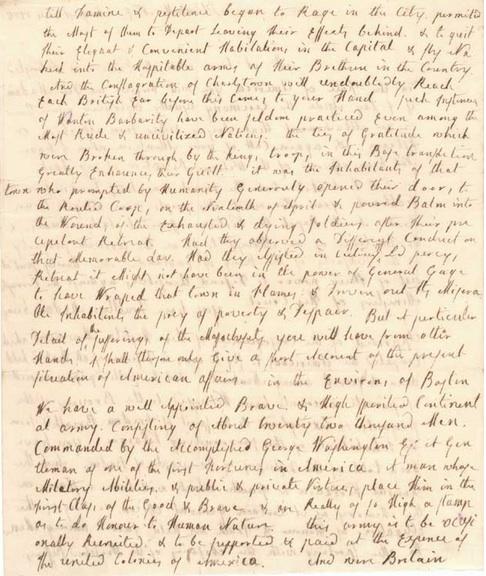 till Famine & pestilence began to Rage in the City. permited
the Most of them to Depart Leaving their Effects behind. & to quit
their Elegant & Convenient Habitations in the Capital & fly Na
ked into the Hospitable arms of their Brethren in the Country
And the Conflagration of Charlstown will undoubtedly Reach
Each British Ear before this Comes to your Hand. Such Instances
of Wanton Barbarity have been seldom practiced Even among the
Most Rude & uncivilized Nations. the ties of Gratitude which
were Broken through by the kings troops in this Base transaction
Greatly Enhances their Guilt. it was the Inhabitants of that
town who prompted by Humanity Generously opened their doors to
the Routed Corps on the Ninteenth of April & poured Balm into
the Wounds of the Exhausted & dying Soldiers after their pre
cepetant Retreat. Had they observed a Different Conduct on
that Memorable day. Had they assisted in Ld percys
Retreat it Might not have been in the power of General Gage
to have Wraped that town in Flames & Driven out the Misera
ble Inhabitants the prey of poverty & Despair. But a particular
Detail of the sufferings of the Massachusets you will have from other
Hands I shall therefore only Give a short Account of the present
situation of American affairs in the Environs of Boston
We have a well Appointed Brave & High spirited Continent
al army. Consisting of About twenty two thousand Men.
Commanded by the Accomplished George Washington Esqr A Gen
tleman of one of the first Fortunes in America A man whose
Military Abilities & public & private Virtues place Him in the
first Class of the Good & Brave & are Really of so High a stamp
as to do Honour to Human Nature this army is to be occasi
onally Recruited & to be supported & paid at the Expence of
the united Colonies of America. And were Britain